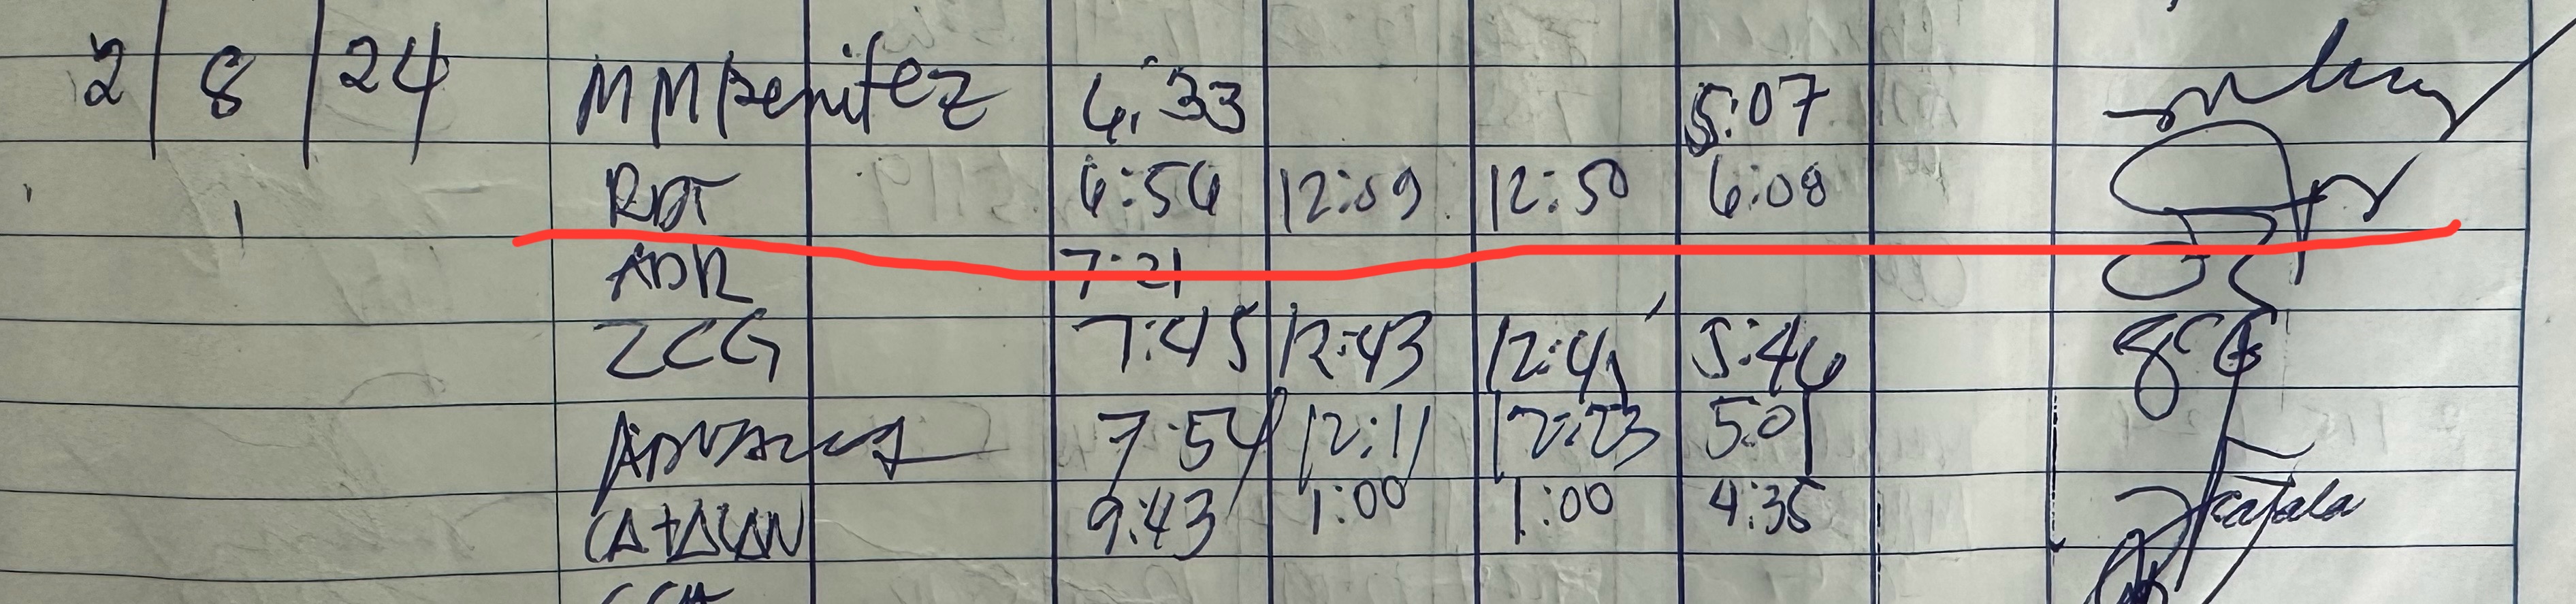 2 | 8 | 24 MMBenitez 6:33 5:07
RDT 6:54 12:09 12:50 6:08
ADR 7:21
ZCG 7:45 12:43 12:41 5:46
7:54 12:11 12:23 5:01
CATALAN 9:43 1:00 1:00 4:35